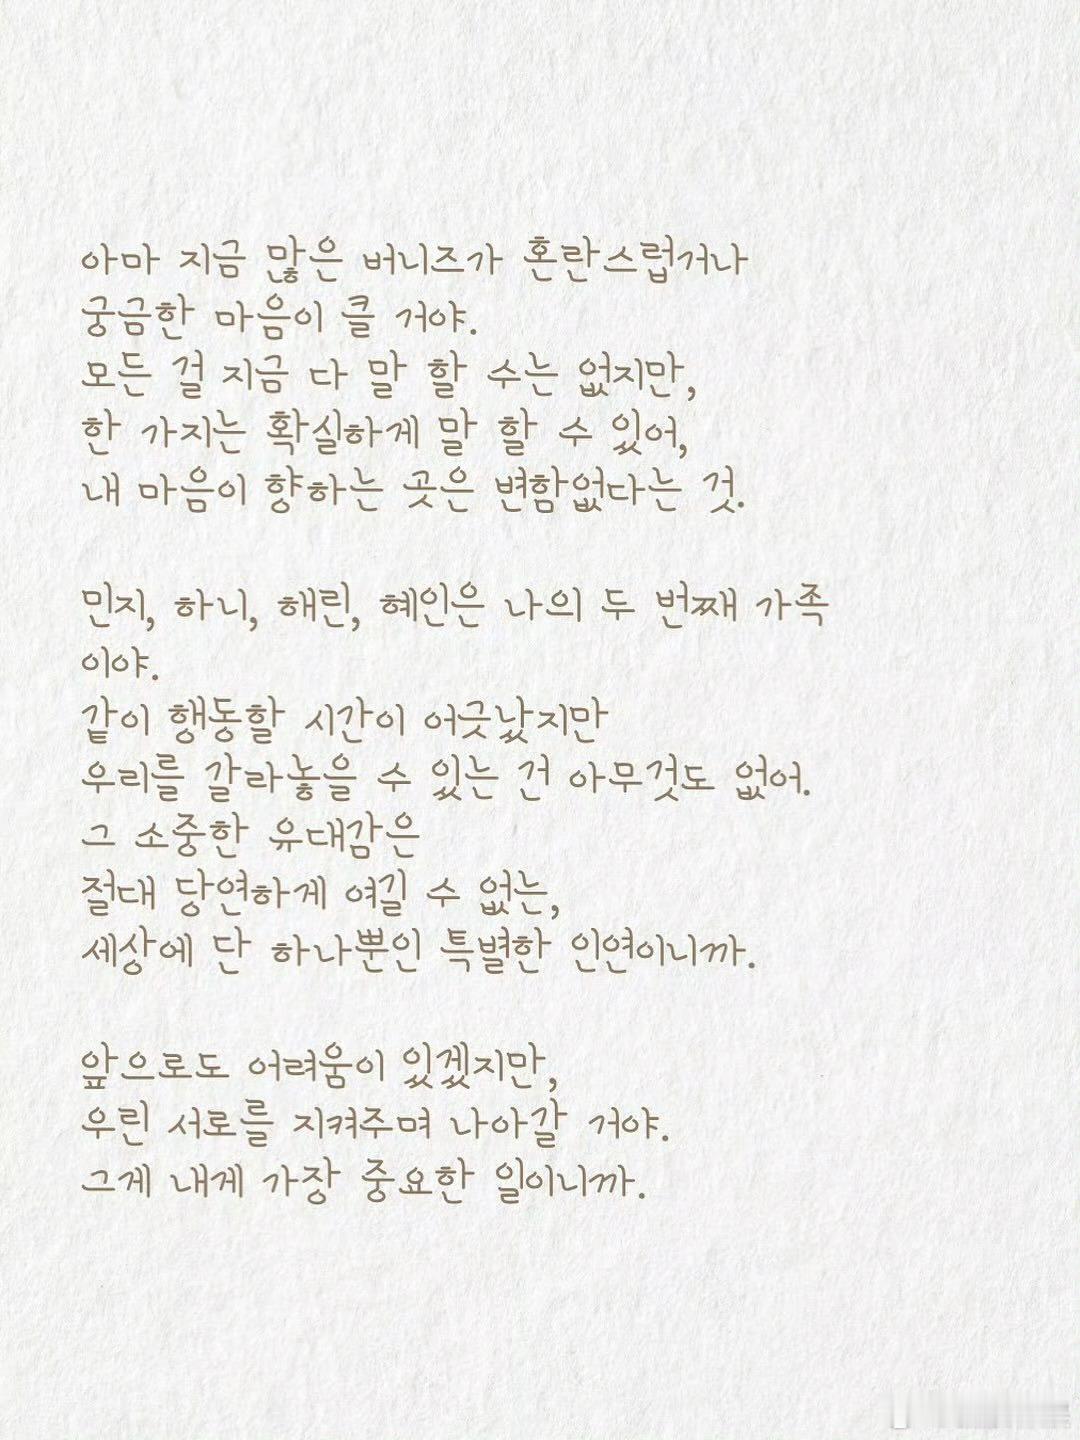 아마 지금 많은 버니즈가 혼란스럽거나
궁금한 마음이 클 거야.
모든 걸 지금 다 말 할 수는 없지만,
한 가지는 확실하게 말 할 수 있어,
내 마음이 향하는 곳은 변함없다는 것.
민지, 하니, 해린, 혜인은 나의 두 번째 가족
이야.
같이 행동할 시간이 어긋났지만
우리를 갈라놓을 수 있는 건 아무것도 없어.
그 소중한 유대감은
절대 당연하게 여길 수 없는,
세상에 단 하나뿐인 특별한 인연이니까.
앞으로도 어려움이 있겠지만,
우린 서로를 지켜주며 나아갈 거야.
그게 내게 가장 중요한 일이니까.